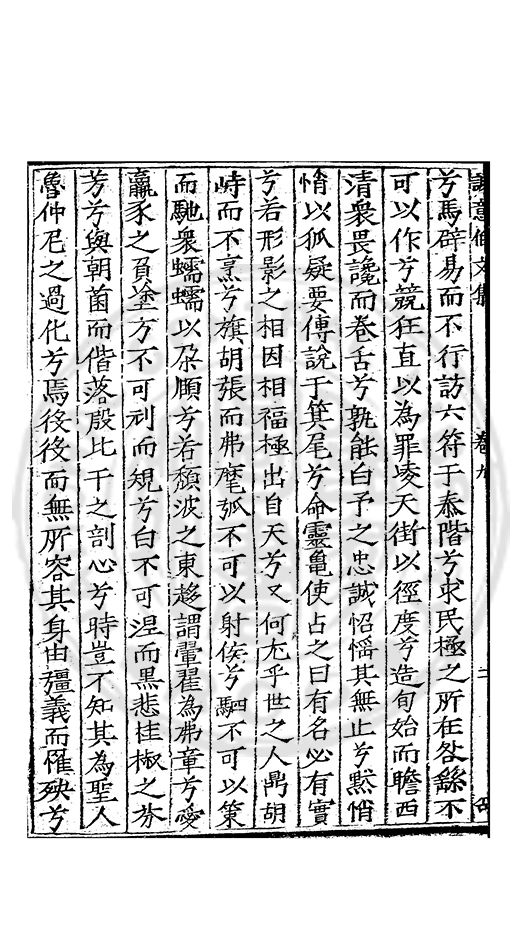 誠意伯文集 卷九
兮馬辟易而不行訪六符于泰階兮求民極之所在咎繇不
可以作兮競狂直以為罪凌天街以徑度兮造旬始而瞻西
清衆畏讒而卷舌兮孰能白予之忠誠怊慆其無止兮黙悄
悁以狐疑要傳說于箕尾兮命靈龜使占之曰有名必有實
兮若形影之相因相福極出自天兮又何尤乎世之人鼎胡
峙而不烹兮旗胡張而弗麾弧不可以射侯兮駟不可以策
而馳衆蠕蠕以朶頥兮若頽波之東趍謂翬翟為弗章兮愛
羸豕之負塗方不可刓而規兮白不可涅而黒悲桂椒之芬
芳兮與朝菌而偕落殷比干之剖心兮時豈不知其為聖人
魯仲尼之過化兮焉役役而無所容其身由彊義而罹殃兮